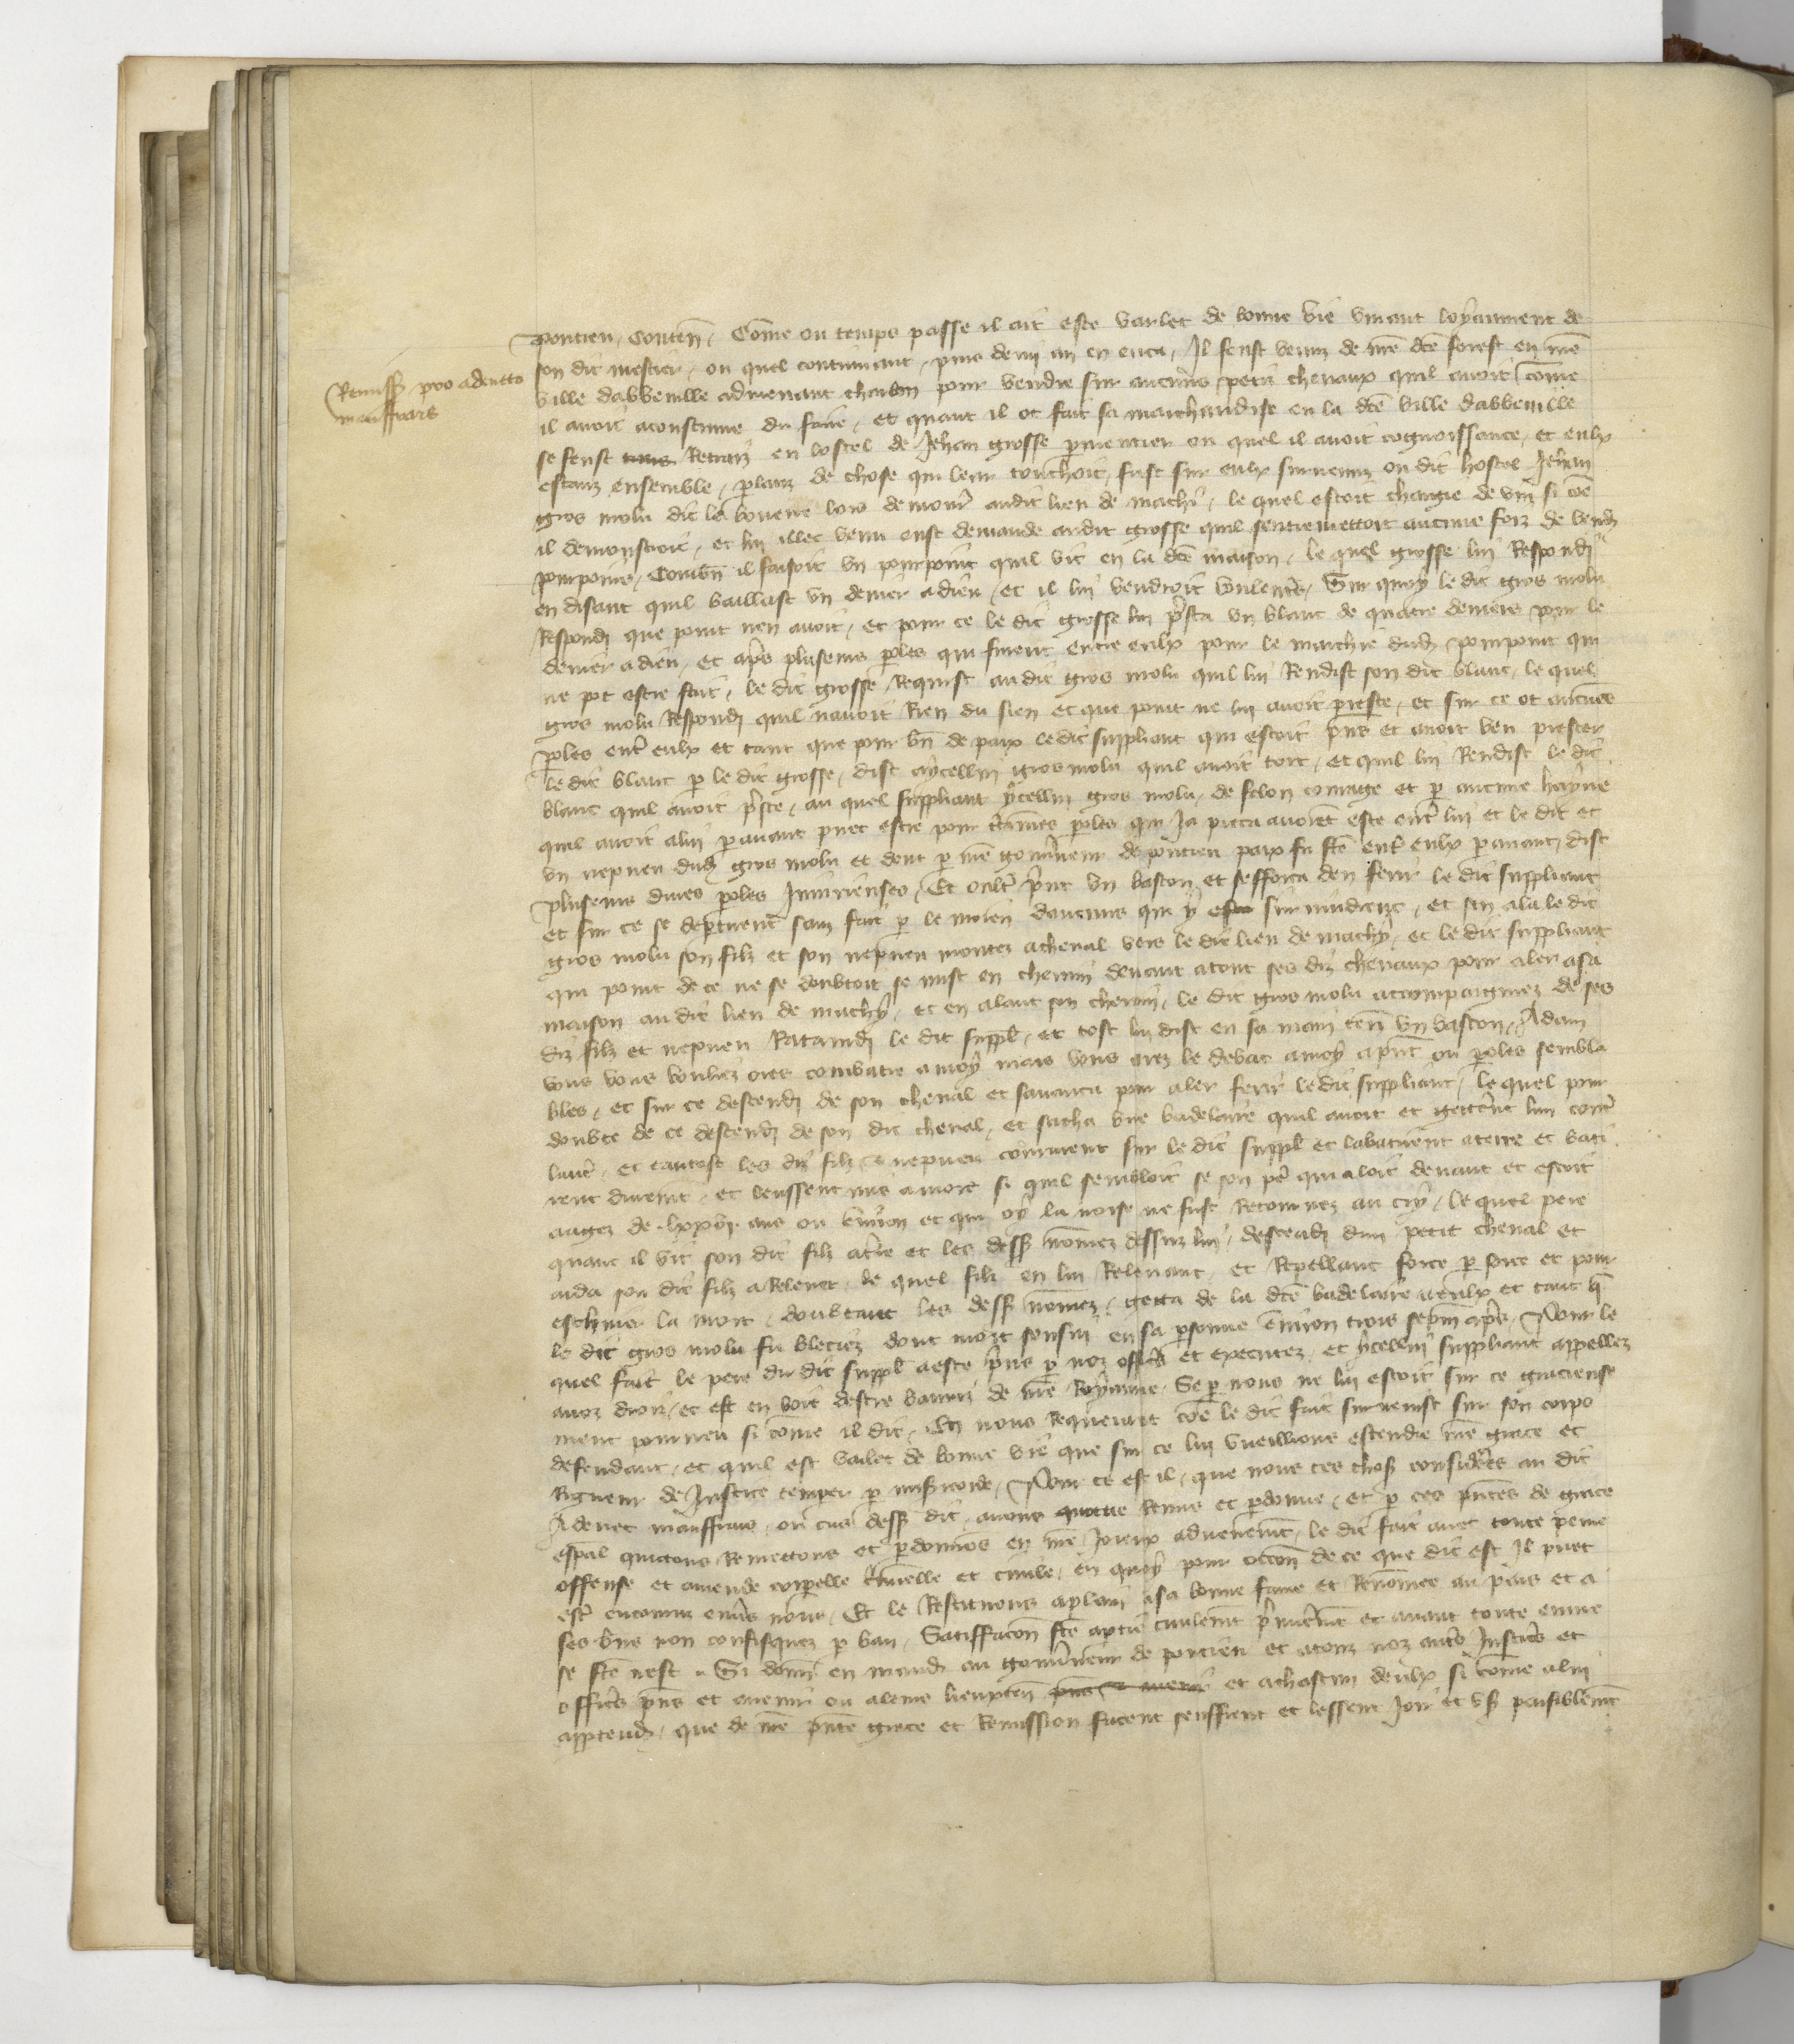 Remiss̃ pro adenetto
mauffrois
Pontieu, Conten̄. Cõme ou temps passe il ait este varlet de bonne vie vivant loyaument de
son dit mestier, ou quel continuant, puis demi an en enca, Il feust venuz de n̄re dc̄e forest en n̄re
ville dabbeville admenant charbon pour vendre sur aucuns petis chevaux quil avoit, cõme
il avoit acoustume du faire, et quant il ot fait sa marchandise en la dc̄e ville dabbeville
se feust Retraiz en lostel de Jehan grosse permentier ou quel il avoit cognoissance, et eulx
estanz ensemble, p̄lanz de chose qui leur touchoit, fust sur eulx survenuz ou dit hostel Jehan
gros molu dit le bouvere lors demour̄ audit lieu de machi, le quel estoit chargie de vin si cõe
il demonstroit, et lui illec venu eust demande audit grosse quil sentremettoit aucune foiz de vend̄
pourpoins, Combn̄ il faisoit un pourpoint quil vit en la dc̄e maison, le quel grosse lui Respondi
en disant quil baillast un denier adieu, et il lui vendroit voulent̄s, Sur quoy le dit gros molu
Respondi que point nen avoit, et pour ce le dit grosse lui p̄sta un blanc de quatre deniers pour le
denier adieu, et ap̄s pluseurs p̄oles qui furent entre eulx pour le marchie dud̄ pourpoint qui
ne pot estre fait, le dit grosse Requist au dit gros molu quil lui Rendist son dit blanc, le quel
gros molu Respondi quil navoit Rien du sien et que point ne lui avoit preste, et sur ce ot aucunes
p̄oles ent̄ eulx et tant que pour bn̄ de paix le dit suppliant qui estoit p̄ns et avoit veu prester
le dit blanc p̄ le dit grosse, dist aycellui gros molu quil avoit tort, et quil lui Rendist le dit
blanc quil avoit p̄ste, au quel suppliant ycellui gros molu, de felon courage et p̄ aucune hayne
quil avoit alui p̄avant puet estre pour c̄taines p̄oles qui ja pieca avoiēt este ent̄ lui et le dit et
un nepveu dud̄ gros molu et dont p̄ n̄re gouv̄neur de pontieu paix fu fc̄e ent̄ eulx p̄avant, dist
pluseurs div̄ses p̄oles Injurieuses, Et oult̄ p̄nt un baston et sefforca den ferir le dit suppliant
et sur ce se dep̄tirent sanz fait p̄ le moien daucuns qui y survindrent, et sen ala le dit
gros molu son filz et son nepveu montez acheval vers le dit lieu de machy, et le dit suppliant
qui point de ce ne se doubtoit se mist en chemin devant atout ses diz chevaux pour aler asa
maison au dit lieu de machy, et en alant son chemin, le dit gros molu acompaigniez de ses
diz filz et nepveu Rataindi le dit suppl̄, et tost lui dist en sa main ten̄ un baston, Adam
vous vous vouliez ores combatre amoy mais vous arez le debat amoy apn̄t ou p̄oles sembla
bles, et sur ce descendi de son cheval et savanca pour aler ferir le dit suppliant, le quel pour
doubte de ce descendi de son dit cheval, et sacha une badelaire quil avoit et getter̄nt lun cont̄
laut̄, et tantost les diz filz et nepveu coururent sur le dit suppl̄ et labatirent aterre et bati
rent durem̄t, et leussent mis amort si quil sembloit se son per̄ qui aloit devant et estoit
aagez de .lxxvj. ans ou env̄ion et qui oy la noise ne fust Retournez au cry, le quel pere
quant il vit son dit filz at̄re et les dess̄ nõmez dessuz lui, descendi dun petit cheval et
aida son dit filz arelever, le quel filz en lui Relevant, et Repellant force p̄ force et pour
eschiver la mort, doubtant les dess̄ nõmez, getta de la dc̄e badelaire aeulx et tant q̄
le dit gros molu fu bleciez dont mort sensui en sa p̄sonne env̄ion trois sepm̄ ap̄s, Pour le
quel fait le pere du dit suppl̄ aeste p̄ns p̄ noz offic̄s et executez, et ycellui suppliant appellez
anoz droiz, et est en voie destre banniz de n̄re Royaume, Se p̄ nous ne lui estoit sur ce gracieuse
ment pourveu si cõme il dit, En nous Requerant cõe le dit fait survenist sur son corps
defendant, et quil est vallet de bonne vie que sur ce lui vueillions estendre n̄re grace et
Rigueur de Justice temper̄ p̄ mis̄icorde, Pour ce est il, que nous ces chos̄ consider̄es au dit
Adenet mauffrois, ou cas dess̄ dit, avons quittie Remis et p̄donne, et p̄ ces pn̄tes de grace
esp̄al quittons Remettons et p̄donnõs en n̄re Joyeux advenem̄t, le dit fait avec toute peine
offense et amende corporelle c̄minelle et civile, en quoy pour occõn de ce que dit est Il puet
est̄ encouruz env̄s nous, Et le Restituons aplain asa bonne fame et Renõmee au pais et a
ses biens non confisquez p̄ ban, Satiffacõn fc̄e aptie civilem̄t p̄mierem̄t et avant toute euvre
se fc̄e nest. Si donn̄ en mand̄ au gouv̄neur de pontieu et atouz noz aut̄s Justic̄s et
offic̄s pn̄s et avenir ou aleurs lieuxten̄ et achascun deulx si cõme alui
appartendr̄, que de n̄re pn̄te grace et Remission facent seuffrent et lessent Joir et us̄ paisiblem̄t